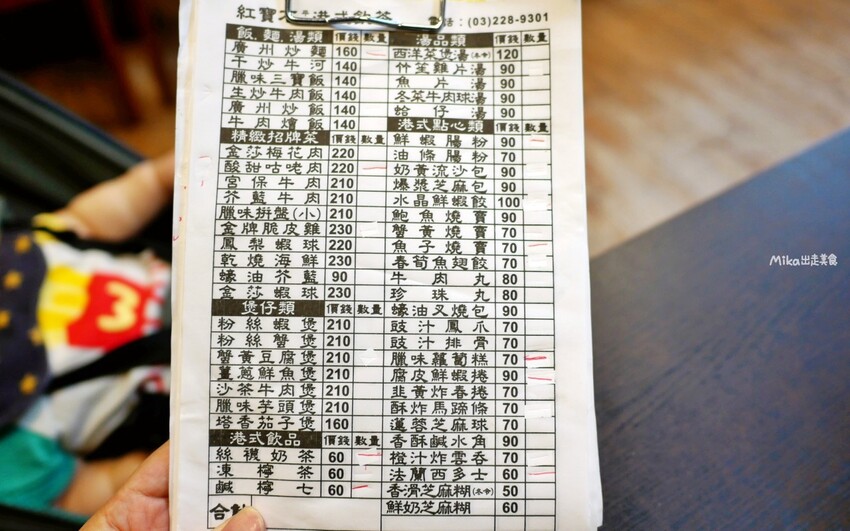 紅寶石港式飲茶 電話：(03)228-9301
飯、麵、湯類 價錢 數量
廣州炒麵 160
干炒牛河 140
臘味三寶飯 140
生炒牛肉飯 140
廣州炒飯 140
牛肉燴飯 140
精緻招牌菜 價錢 數量
金莎梅花肉 220
酸甜咕咾肉 220
宮保牛肉 210
芥藍牛肉 210
臘味拼盤(小) 210
金牌脆皮雞 230
鳳梨蝦球 220
乾燒海鮮 230
蠔油芥藍 90
金莎蝦球 230
煲仔類 價錢 數量
粉絲蝦煲 210
粉絲蟹煲 210
蟹黃豆腐煲 210
薑蔥鮮魚煲 210
沙茶牛肉煲 210
臘味芋頭煲 210
塔香茄子煲 160
港式飲品 價錢 數量
絲襪奶茶 60
凍檸茶 60
鹹檸七 60
合計
湯品類 價錢 數量
西洋菜煲湯(冬令) 120
竹笙雞片湯 90
魚片湯 90
冬菜牛肉球湯 90
蛤仔湯 90
港式點心類 價錢 數量
鮮蝦腸粉 90
油條腸粉 70
奶黃流沙包 90
爆漿芝麻包 90
水晶鮮蝦餃 100
鮑魚燒賣 90
蟹黃燒賣 70
魚子燒賣 70
春筍魚翅餃 70
牛肉丸 80
珍珠丸 80
蠔油叉燒包 90
豉汁鳳爪 70
豉汁排骨 70
臘味蘿蔔糕 70
腐皮鮮蝦捲 90
韭黃炸春捲 70
酥炸馬蹄條 70
蓮蓉芝麻球 70
香酥鹹水角 90
橙汁炸雲吞 70
法蘭西多士 60
香滑芝麻糊(冬令) 50
鮮奶芝麻糊 60
Mika出走美食